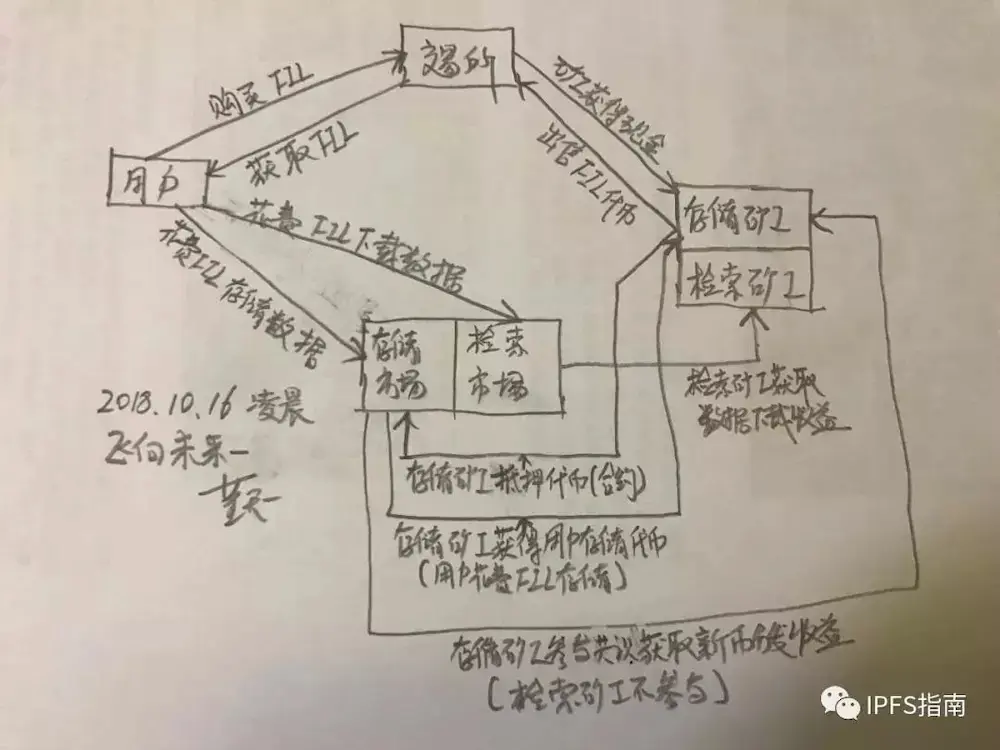 交易所
购买 FIL
获取 FIL
矿工获得现金
出售FIL代币
用户
花费 FIL 下载数据
花费FIL存储数据
存储矿工
检索矿工
存储
市场
检索
市场
检索矿工获取
数据下载收益
2018.10.16 凌晨
飞向未来—
存储矿工抵押代币(合约)
存储矿工获得用户存储代币
(用户花费FIL存储)
存储矿工参与共识获取新币分发收益
(检索矿工不参与)
IPFS指南